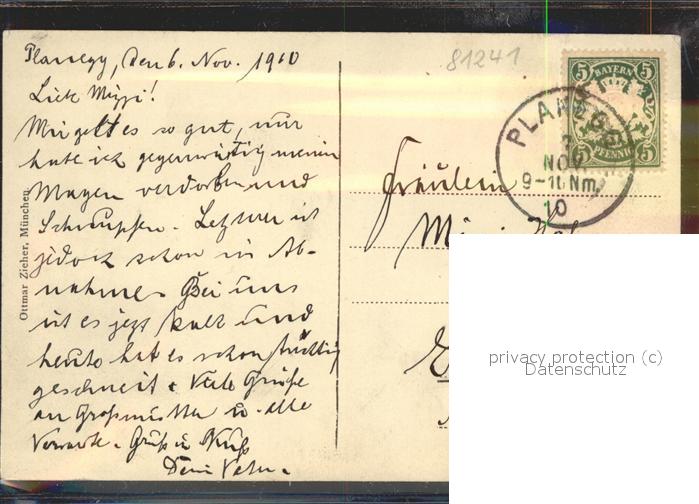 Planegg, den 6. Nov. 1910
81241
Liebe Mizzi!
Mir geht es so gut, nur
habe ich gegenwärtig meinen
Magen verdorben und
Schnupfen. Letzterer ist
jedoch schon in Ab-
nahme. Bei uns
ist es jezt kalt und
heute hat es schon tüchtig
geschneit. Viele Grüße
an Großmutter u. alle
Verwandte. Gruß u. Kuß
Dein Vater.
Ottmar Zieher, München
BAYERN
5 5
5 PFENNIG 5
PLANEGG
NOV
9-10 Nm.
10
Fräulein
privacy protection (c)
Datenschutz